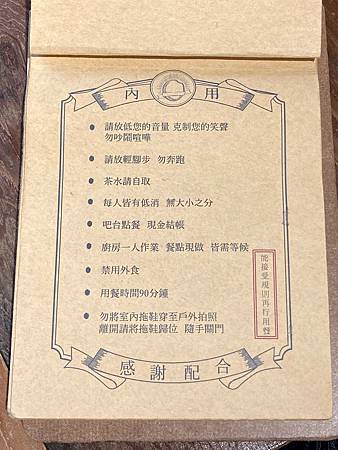 內用
請放低您的音量 克制您的笑聲
勿吵鬧喧嘩
請放輕腳步 勿奔跑
茶水請自取
每人皆有低消 無大小之分
吧台點餐 現金結帳
廚房一人作業 餐點現做 皆需等候
禁用外食
用餐時間90分鐘
勿將室內拖鞋穿至戶外拍照
離開請將拖鞋歸位 隨手關門
能接受規則再行用餐
感謝配合